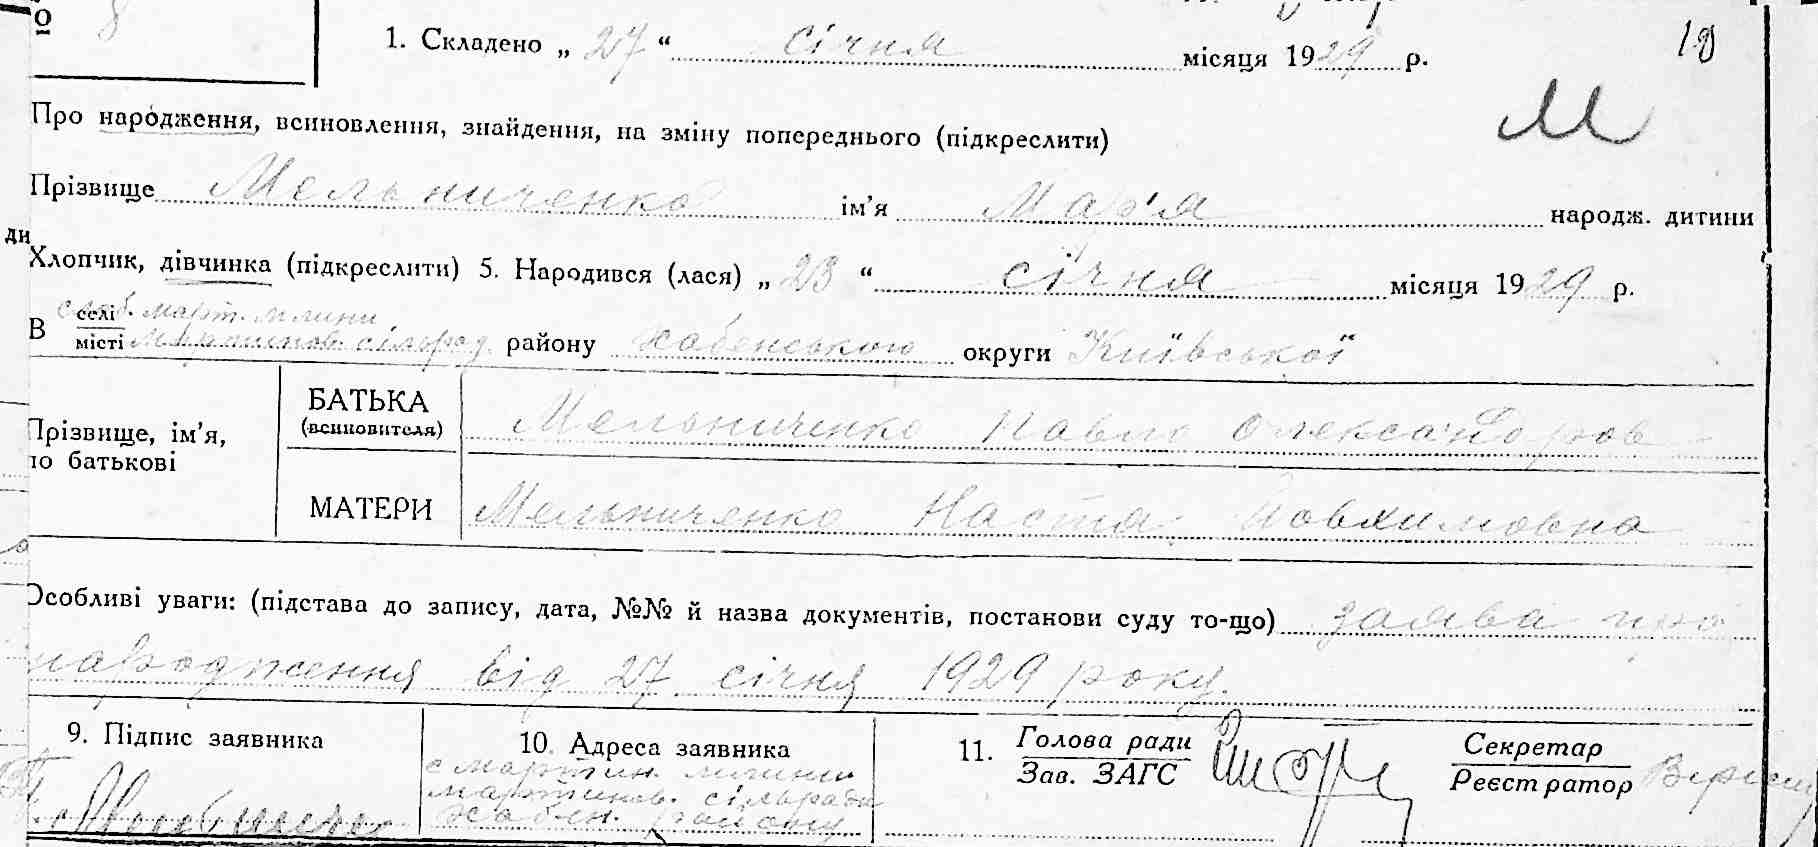 О 8
1. Складено „ 27 “ січня місяця 1929 р.
10
М
Про народження, всиновлення, знайдення, на зміну попереднього (підкреслити)
Прізвище Мельниченко ім’я Мар’я народж. дитини
ди
Хлопчик, дівчинка (підкреслити) 5. Народився (лася) „ 23 “ січня місяця 1929 р.
слоб. март. млини
В селі місті Мартинов. сільрад. району Хабенського округи Київської
Прізвище, ім’я,
по батькові
БАТЬКА
(всиновителя)
Мельниченко Павло Олександров
МАТЕРИ Мельниченко Настя Йовхимовна
Особливі уваги: (підстава до запису, дата, №№ й назва документів, постанови суду то-що) заява про
народження від 27 січня 1929 року.
9. Підпис заявника
10. Адреса заявника
с мартин. млини
мартинов. сільради
Хабен. району
11. Голова ради
Зав. ЗАГС
Секретар
Реєстратор